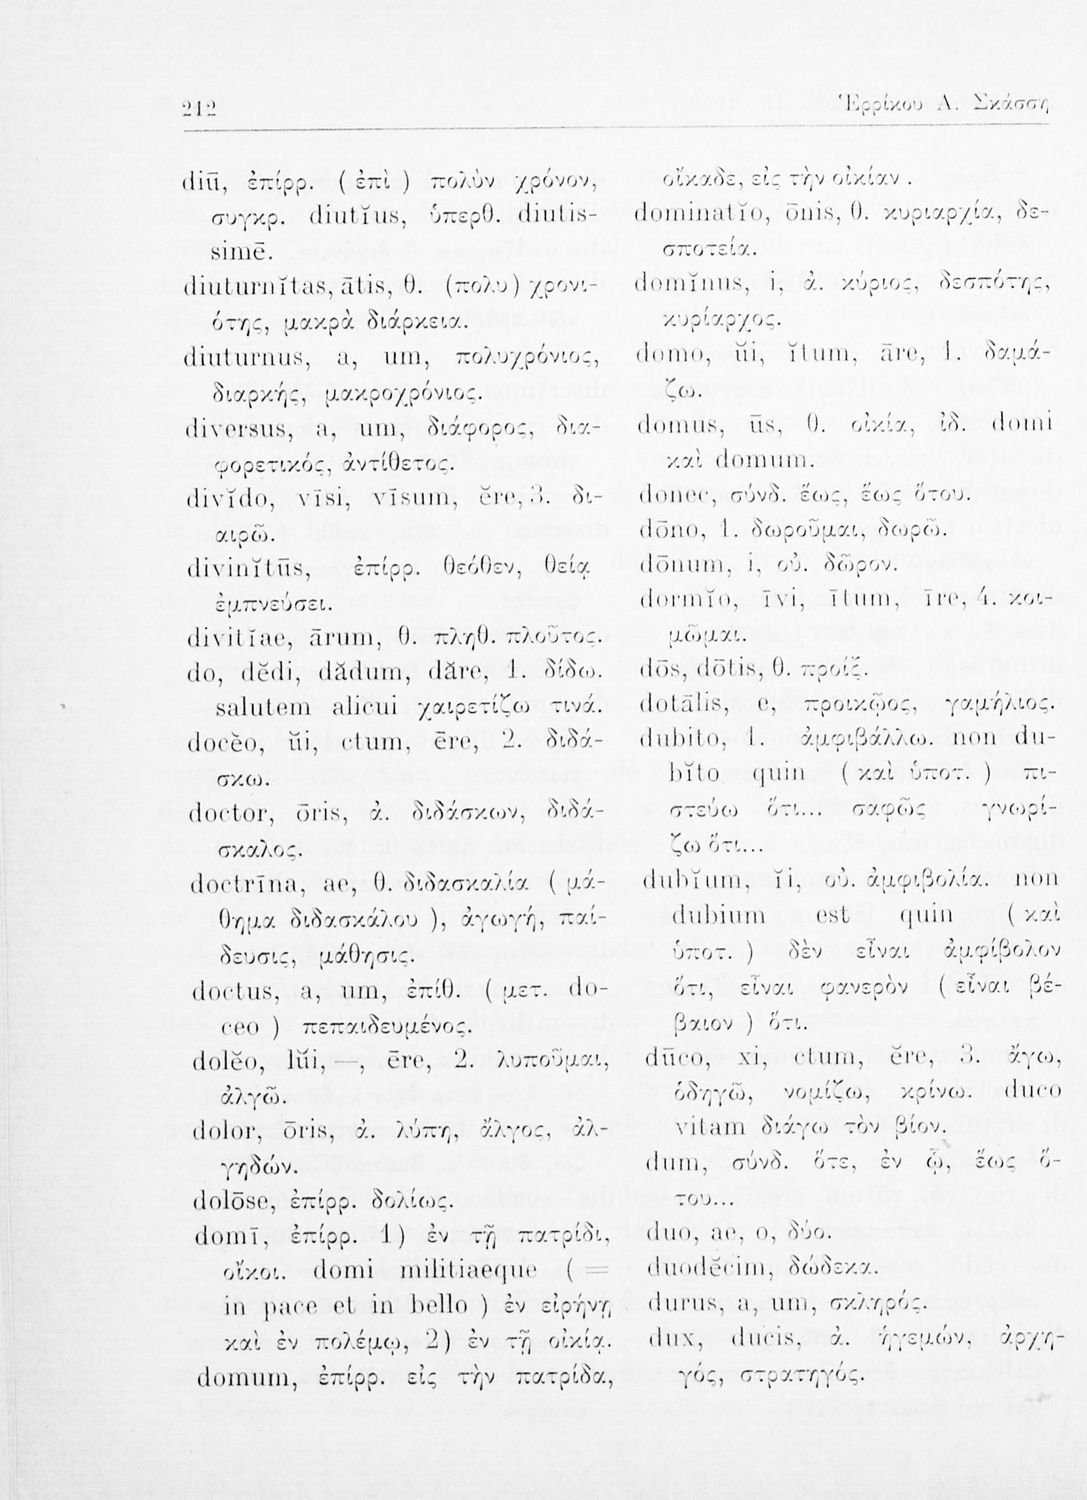 212
Ἑρρίκου Α. Σκάσση
diū, ἐπίρρ. ( ἐπὶ ) πολὺν χρόνον,
συγκρ. diutĭus, ὑπερθ. diutis-
simē.
diuturnĭtas, ātis, θ. (πολυ) χρονι-
ότης, μακρὰ διάρκεια.
diuturnus, a, um, πολυχρόνιος,
διαρκής, μακροχρόνιος.
diversus, a, um, διάφορος, δια-
φορετικός, ἀντίθετος.
divĭdo, vīsi, vīsum, ĕre, 3. δι-
αιρῶ.
divinĭtŭs, ἐπίρρ. θεόθεν, θείᾳ
ἐμπνεύσει.
divitĭae, ārum, θ. πληθ. πλοῦτος.
do, dĕdi, dădum, dăre, 1. δίδω.
salutem alicui χαιρετίζω τινά.
docĕo, ŭi, ctum, ēre, 2. διδά-
σκω.
doctor, ōris, ἀ. διδάσκων, διδά-
σκαλος.
doctrīna, ae, θ. διδασκαλία ( μά-
θημα διδασκάλου ), ἀγωγή, παί-
δευσις, μάθησις.
doctus, a, um, ἐπίθ. ( μετ. do-
ceo ) πεπαιδευμένος.
dolĕo, lŭi, —, ēre, 2. λυποῦμαι,
ἀλγῶ.
dolor, ōris, ἀ. λύπη, ἄλγος, ἀλ-
γηδών.
dolōse, ἐπίρρ. δολίως.
domī, ἐπίρρ. 1) ἐν τῇ πατρίδι,
οἴκοι. domi militiaeque ( =
in pace et in bello ) ἐν εἰρήνῃ
καὶ ἐν πολέμῳ, 2) ἐν τῇ οἰκίᾳ.
domum, ἐπίρρ. εἰς τὴν πατρίδα,
οἴκαδε, εἰς τὴν οἰκίαν .
dominatĭo, ōnis, θ. κυριαρχία, δε-
σποτεία.
domĭnus, i, ἀ. κύριος, δεσπότης,
κυρίαρχος.
domo, ŭi, ĭtum, āre, 1. δαμά-
ζω.
domus, ūs, θ. οἰκία, ἰδ. domi
καὶ domum.
donec, σύνδ. ἕως, ἕως ὅτου.
dōno, 1. δωροῦμαι, δωρῶ.
dōnum, i, οὐ. δῶρον.
dormĭo, īvi, ītum, īre, 4. κοι-
μῶμαι.
dōs, dōtis, θ. προίξ.
dotālis, e, προικῷος, γαμήλιος.
dubito, 1. ἀμφιβάλλω. non du-
bĭto quin ( καὶ ὑποτ. ) πι-
στεύω ὅτι... σαφῶς γνωρί-
ζω ὅτι...
dubĭum, ĭi, οὐ. ἀμφιβολία. non
dubium est quin ( καὶ
ὑποτ. ) δὲν εἶναι ἀμφίβολον
ὅτι, εἶναι φανερὸν ( εἶναι βέ-
βαιον ) ὅτι.
dūco, xi, ctum, ĕre, 3. ἄγω,
ὁδηγῶ, νομίζω, κρίνω. duco
vitam διάγω τὸν βίον.
dum, σύνδ. ὅτε, ἐν ᾧ, ἕως ὅ-
του...
duo, ae, o, δύο.
duodĕcim, δώδεκα.
durus, a, um, σκληρός.
dux, ducis, ἀ. ἡγεμών, ἀρχη-
γός, στρατηγός.